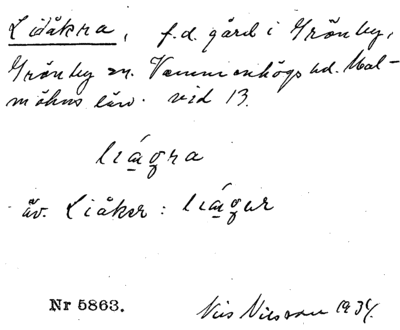 Lidåkra, f.d. gård i Grönby,
Grönby sn. Vemmenhögs hd. Mal-
möhus län. vid 13.
liágra
äv. Liåker: liágur
Nr 5863.
Nils Nilsson 1934.